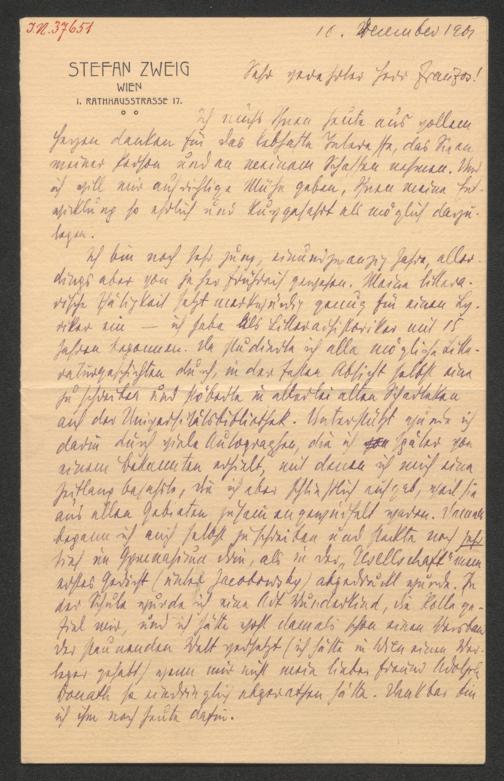 I.N. 37651
10. Dezember 1901
STEFAN ZWEIG
WIEN
I. RATHHAUSSTRASSE 17.
Sehr verehrter Herr Franzos!
Ich muss Ihnen heute aus vollem
Herzen danken für das lebhafte Interesse, das Sie an
meiner Person und an meinem Schaffen nehmen. Und
ich will mir aufrichtige Mühe geben, Ihnen meine Ent-
wicklung so ehrlich und kurzgefasst als möglich darzu-
legen.
Ich bin noch sehr jung, einundzwanzig Jahre, aller-
dings aber von jeher frühreif gewesen. Meine littera-
rische Thätigkeit setzt merkwürdig genug für einen Ly-
riker ein — ich habe als Litterarhistoriker mit 15
Jahren begonnen. Da studierte ich alle möglichen Litte-
raturgeschichten durch, in der festen Absicht selbst eine
zu schreiben und stöberte in allerlei alten Scharteken
auf der Universitätsbibliothek. Unterstützt wurde ich
darin durch viele Autographen, die ich später von
einem Bekannten erhielt, mit denen ich mich eine
Zeitlang befasste, die ich aber schliesslich aufgab, weil sie
aus allen Gebieten zusammengewürfelt waren. Damals
begann ich auch selbst zu schreiben und steckte noch
tief im Gymnasium drin, als in der „Gesellschaft" mein
erstes Gedicht (unter Jacobowsky) abgedruckt wurde. In
der Schule wurde ich eine Art Wunderkind, die Rolle ge-
fiel mir, und ich hätte wohl damals schon einen Versband
der staunenden Welt versetzt (ich hätte in Wien einen Ver-
leger gehabt) wenn mir nicht mein lieber Freund Adolph
Donath so eindringlich abgerathen hätte. Dankbar bin
ich ihm noch heute dafür.